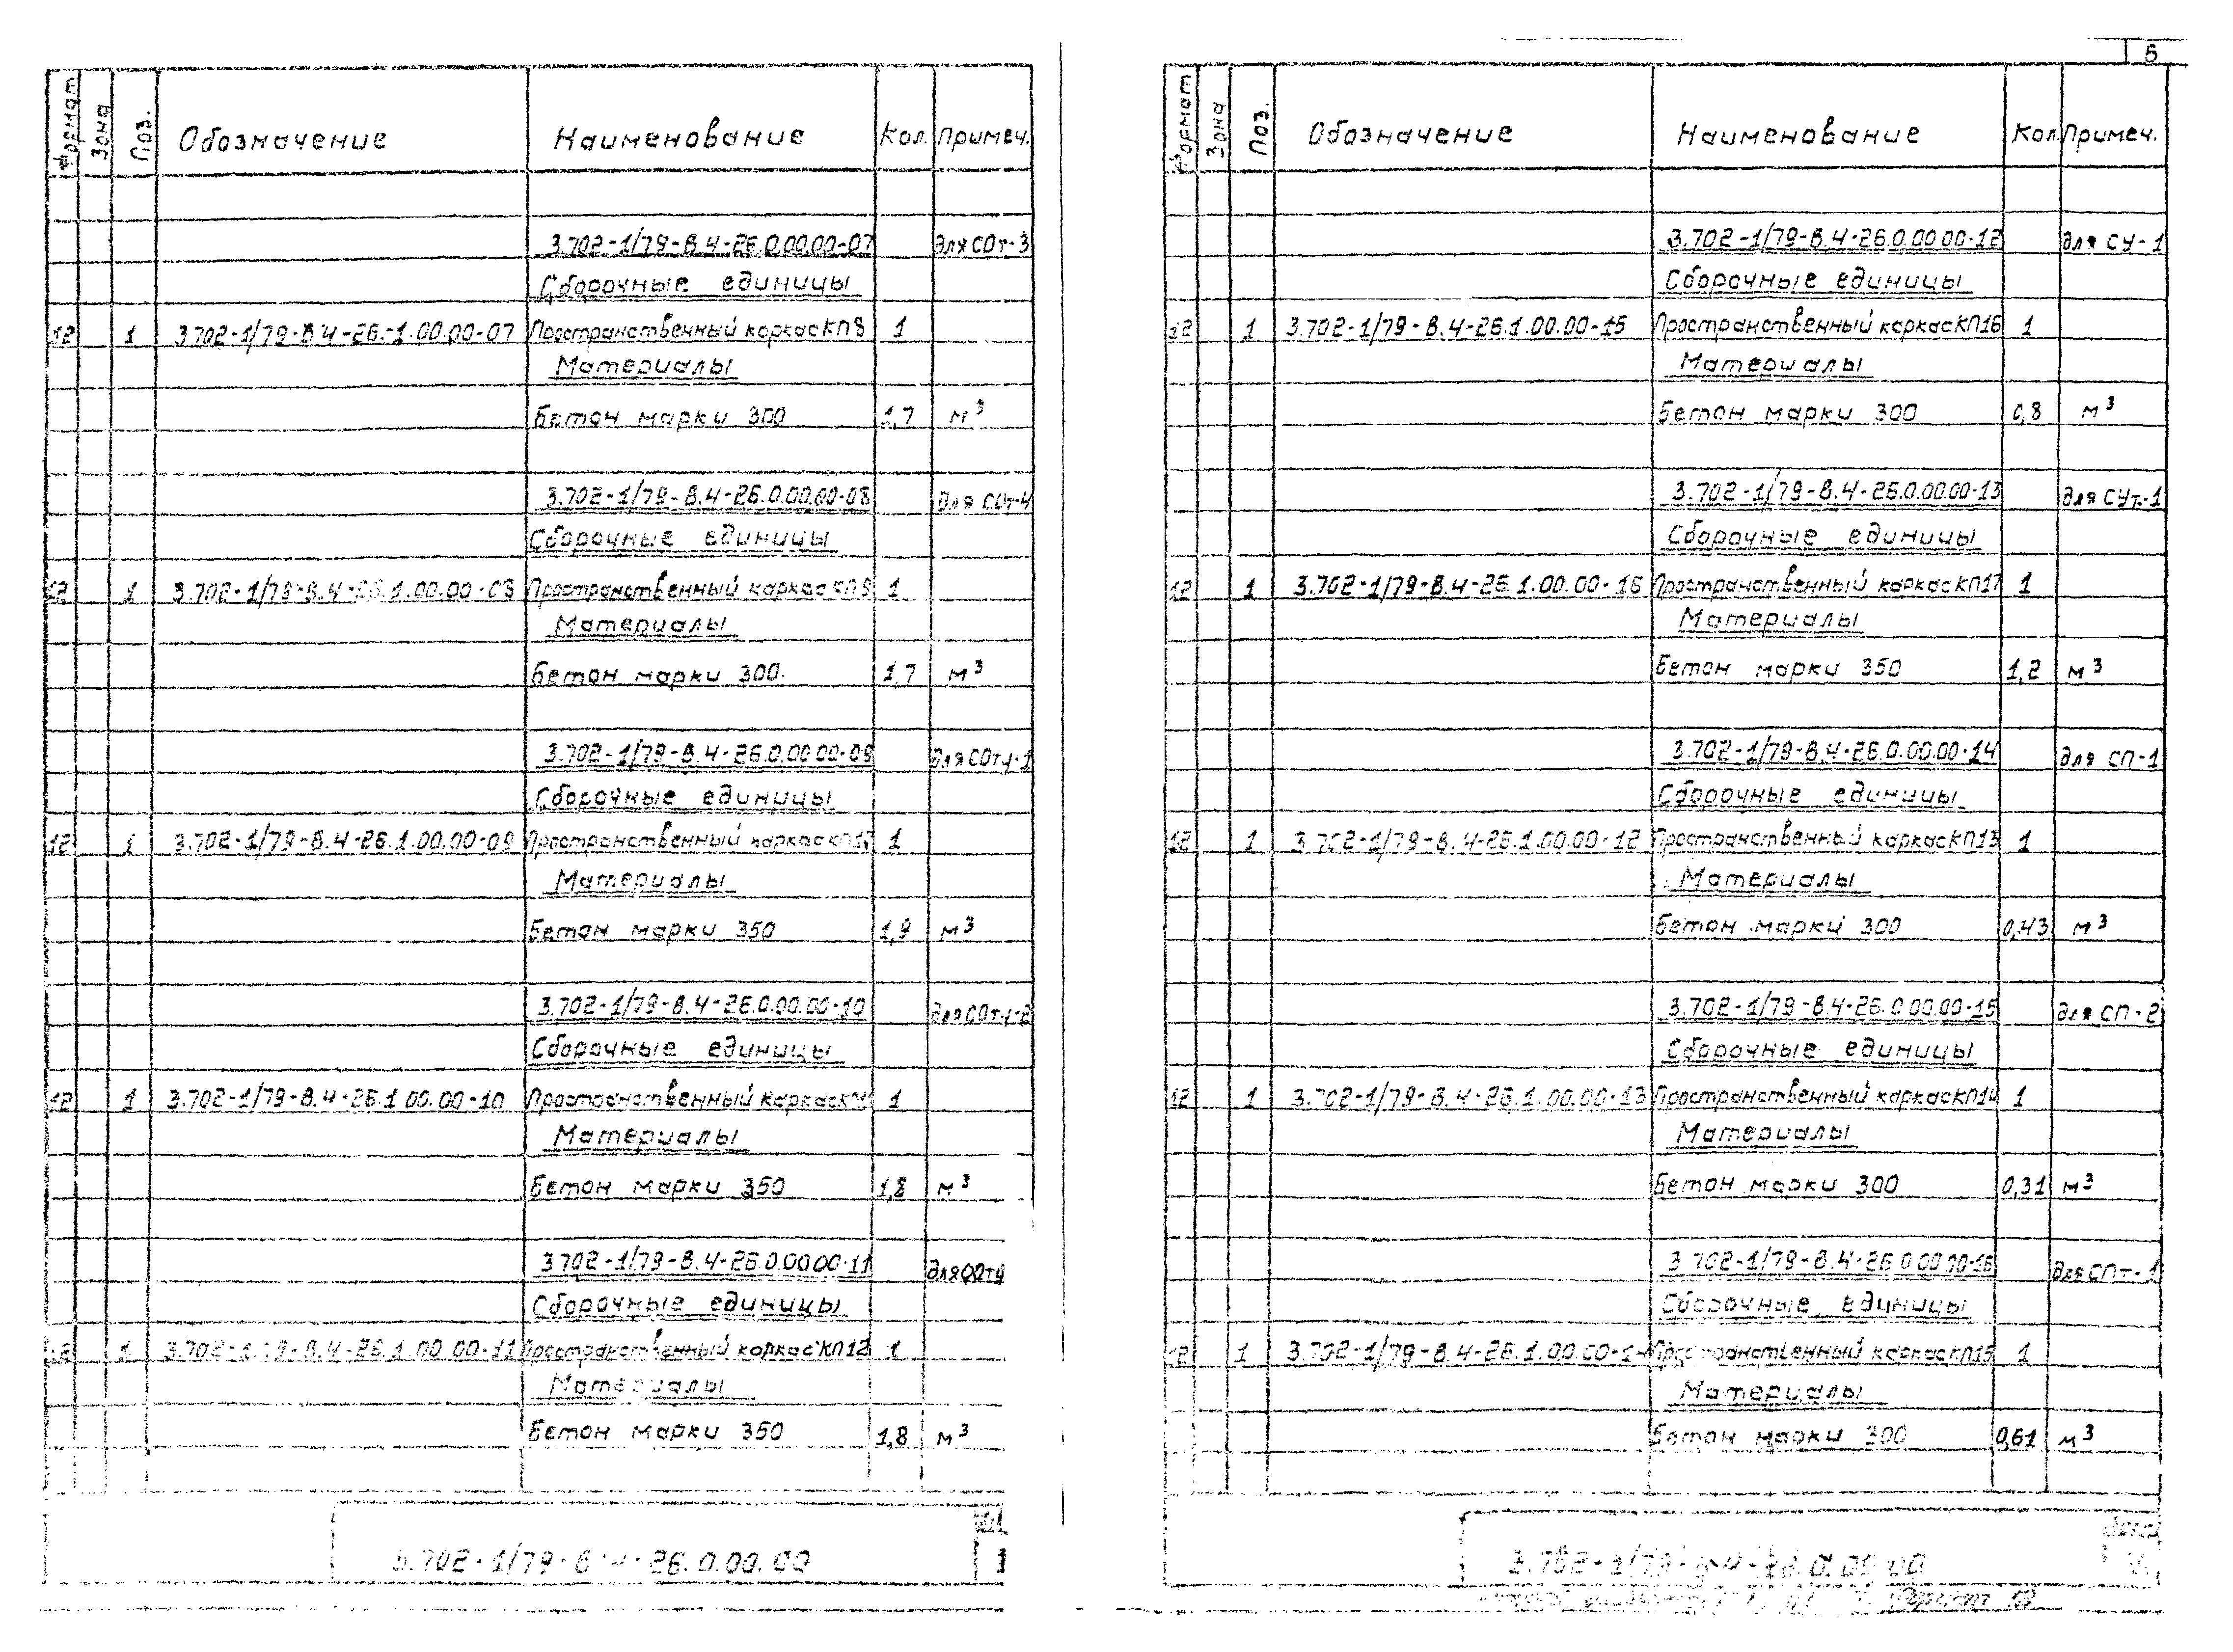 Формат Зона Поз. Обозначение Наименование Кол. Примеч.
3.702-1/79-В.4-26.0.00.00-07 для СОт-3
Сборочные единицы
12 1 3.702-1/79-В.4-26.1.00.00-07 Пространственный каркас КП8 1
Материалы
Бетон марки 300 1,7 м³
3.702-1/79-В.4-26.0.00.00-08 для СОт-4
Сборочные единицы
12 1 3.702-1/79-В.4-26.1.00.00-08 Пространственный каркас КП9 1
Материалы
Бетон марки 300 1,7 м³
3.702-1/79-В.4-26.0.00.00-09 для СОту-1
Сборочные единицы
12 1 3.702-1/79-В.4-26.1.00.00-09 Пространственный каркас 1
Материалы
Бетон марки 350 1,9 м³
3.702-1/79-В.4-26.0.00.00-10 для СОту-2
Сборочные единицы
12 1 3.702-1/79-В.4-26.1.00.00-10 Пространственный каркас 1
Материалы
Бетон марки 350 1,8 м³
3.702-1/79-В.4-26.0.00.00-11 для
Сборочные единицы
12 1 3.702-1/79-В.4-26.1.00.00-11 Пространственный каркас КП12 1
Материалы
Бетон марки 350 1,8 м³
3.702-1/79-В.4-26.0.00.00
5
Формат Зона Поз. Обозначение Наименование Кол Примеч.
3.702-1/79-В.4-26.0.00.00-12 для СУ-1
Сборочные единицы
12 1 3.702-1/79-В.4-26.1.00.00-15 Пространственный каркас КП16 1
Материалы
Бетон марки 300 0,8 м³
3.702-1/79-В.4-26.0.00.00-13 для СУт-1
Сборочные единицы
12 1 3.702-1/79-В.4-26.1.00.00-16 Пространственный каркас КП17 1
Материалы
Бетон марки 350 1,2 м³
3.702-1/79-В.4-26.0.00.00-14 для СП-1
Сборочные единицы
12 1 3.702-1/79-В.4-26.1.00.00-12 Пространственный каркас КП13 1
Материалы
Бетон марки 300 0,43 м³
3.702-1/79-В.4-26.0.00.00-15 для СП-2
Сборочные единицы
12 1 3.702-1/79-В.4-26.1.00.00-13 Пространственный каркас КП14 1
Материалы
Бетон марки 300 0,31 м³
3.702-1/79-В.4-26.0.00.00-16 для СПт-1
Сборочные единицы
12 1 3.702-1/79-В.4-26.1.00.00-14 Пространственный каркас КП15 1
Материалы
Бетон марки 300 0,61 м³
3.702-1/79-В.4-26.0.00.00
Лист
Формат 12